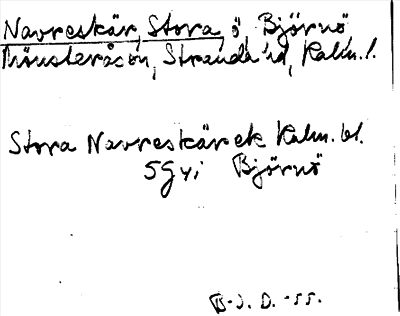 Navreskär, Stora, ö, Björnö,
Mönsterås sn, Stranda hd, Kalm. l.
Stora Navreskär ek Kalm. bl.
5G yi Björnö
B-J. D. -55.